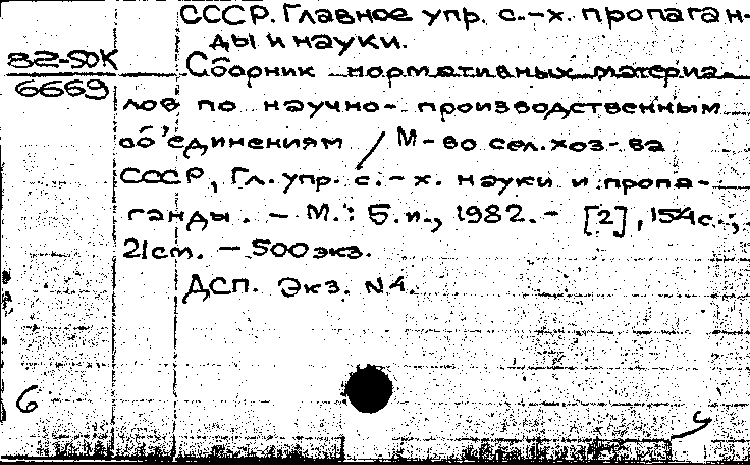 СССР. Главное упр. с.-х. пропаган-
ды и науки.
82-50К
6669
Сборник нормативных материа-
лов по научно-производственным
об'единениям / М-во сел. хоз-ва
СССР, Гл. упр. с.-х. науки и пропа-
ганды. - М.: Б.и., 1982. - [2], 154с.;
21см. - 500экз.
ДСП. Экз. N4.
6